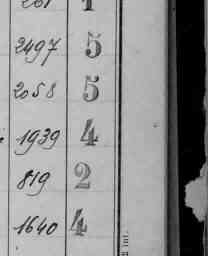 261 1
2497 5
2058 5
1939 4
819 2
1640 4